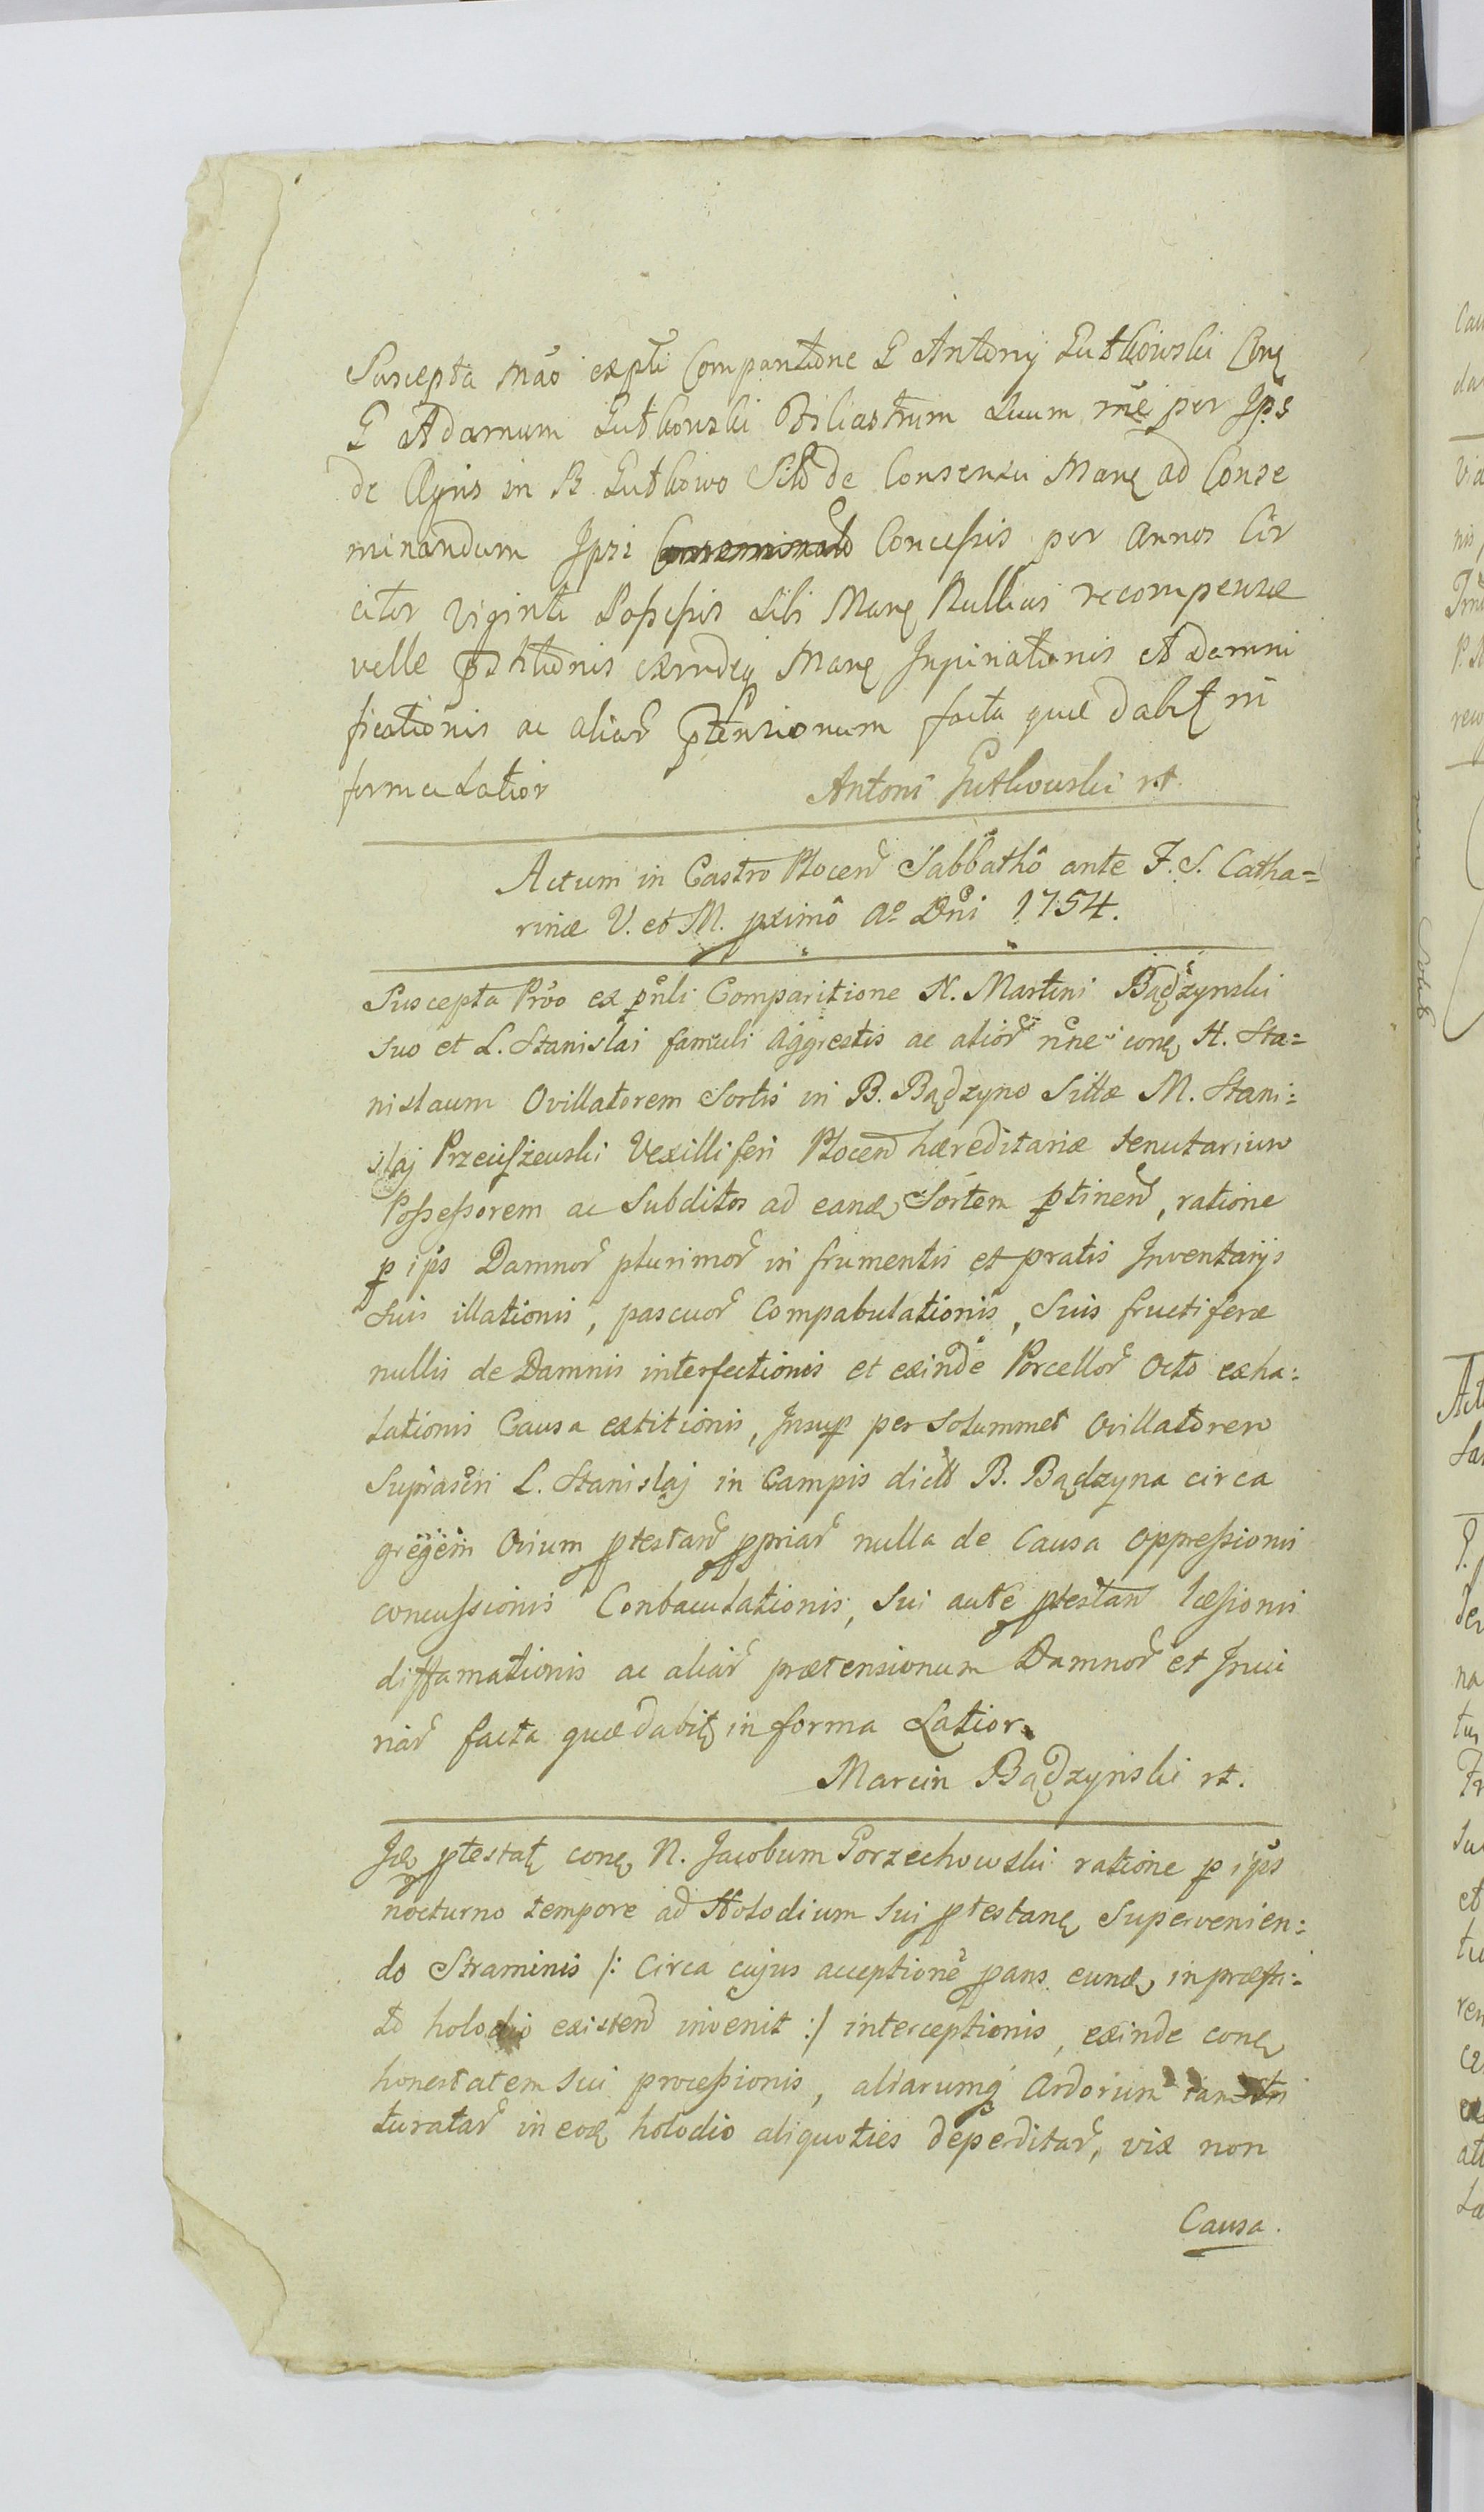 Suscepta mão ex pñti Comparitione G Antonij Gutkowski Conq
G Adamum Gutkowski Filiastrum Suum rñe per Ips
de Agris in B. Gutkowo Sitõ de Consensu Manq ad Conse
minandum Ipsi Concessis per annos Cir
citer viginti Possessis Sibi Manq Nullius recompensæ
velle
ficationis ac aliar̃ ptensionum facta quæ dabit̃ in
forma Latior
Antoni Gutkowski rt.
Actum in Castro Plocen̄ Sabbathô ante F. S. Catha=
rinæ V. et M. pximô Aº Dni 1754.
Suscepta Prõo ex pñli Comparitione N. Martini Bądzynski
suo et L. Stanislai famuli aggrestis ac alior̃ nñe conq H. Sta=
nislaum Ovillatorem Sortis in B. Bądzyno Sittæ M. Stani:
slaj Przeciszewski Vexilliferi Plocen̄ hæreditariæ tenutarium
Possessorem ac Subditos ad eandq Sortem ptinen̄, ratione
p ips Damnor̃ plurimor̃ in frumentis et pratis Inventarijs
suis illationis, pascuor̃ Compabulationis, Suis fructiferæ
nullis de Damnis interfectionis et exinde Porcellor̃ Octo exha:
lationis Causa extitionis, Insup per Solummet Ovillatorem
Suprascri L. Stanislaj in Campis dictõ B. Bądzyna circa
gregem Ovium ptestan̄ ppriar̃ nulla de Causa oppressionis
concussionis Conbaculationis, Sui autē ptestan̄ læsionis
diffamationis ac aliar̃ prætensionum Damnor̃ et Injuu
riar̃ facta quæ dabitq in forma Latior.
Marcin Bądzynski rt.
Idq ptestatq conq N. Jacobum Gorzechowski ratione p ips
nocturno tempore ad Holodium sui ptestanq Supervenien:
do Straminis /: circa cujus acceptionē pans eundq in præfa:
tõ holodio existen̄ invenit :/ interceptionis, exinde conq
honestatem Sui processionis, aliarumq
turatar̃ in eodq holodio aliquoties deperditar̃, viæ non
Causa.